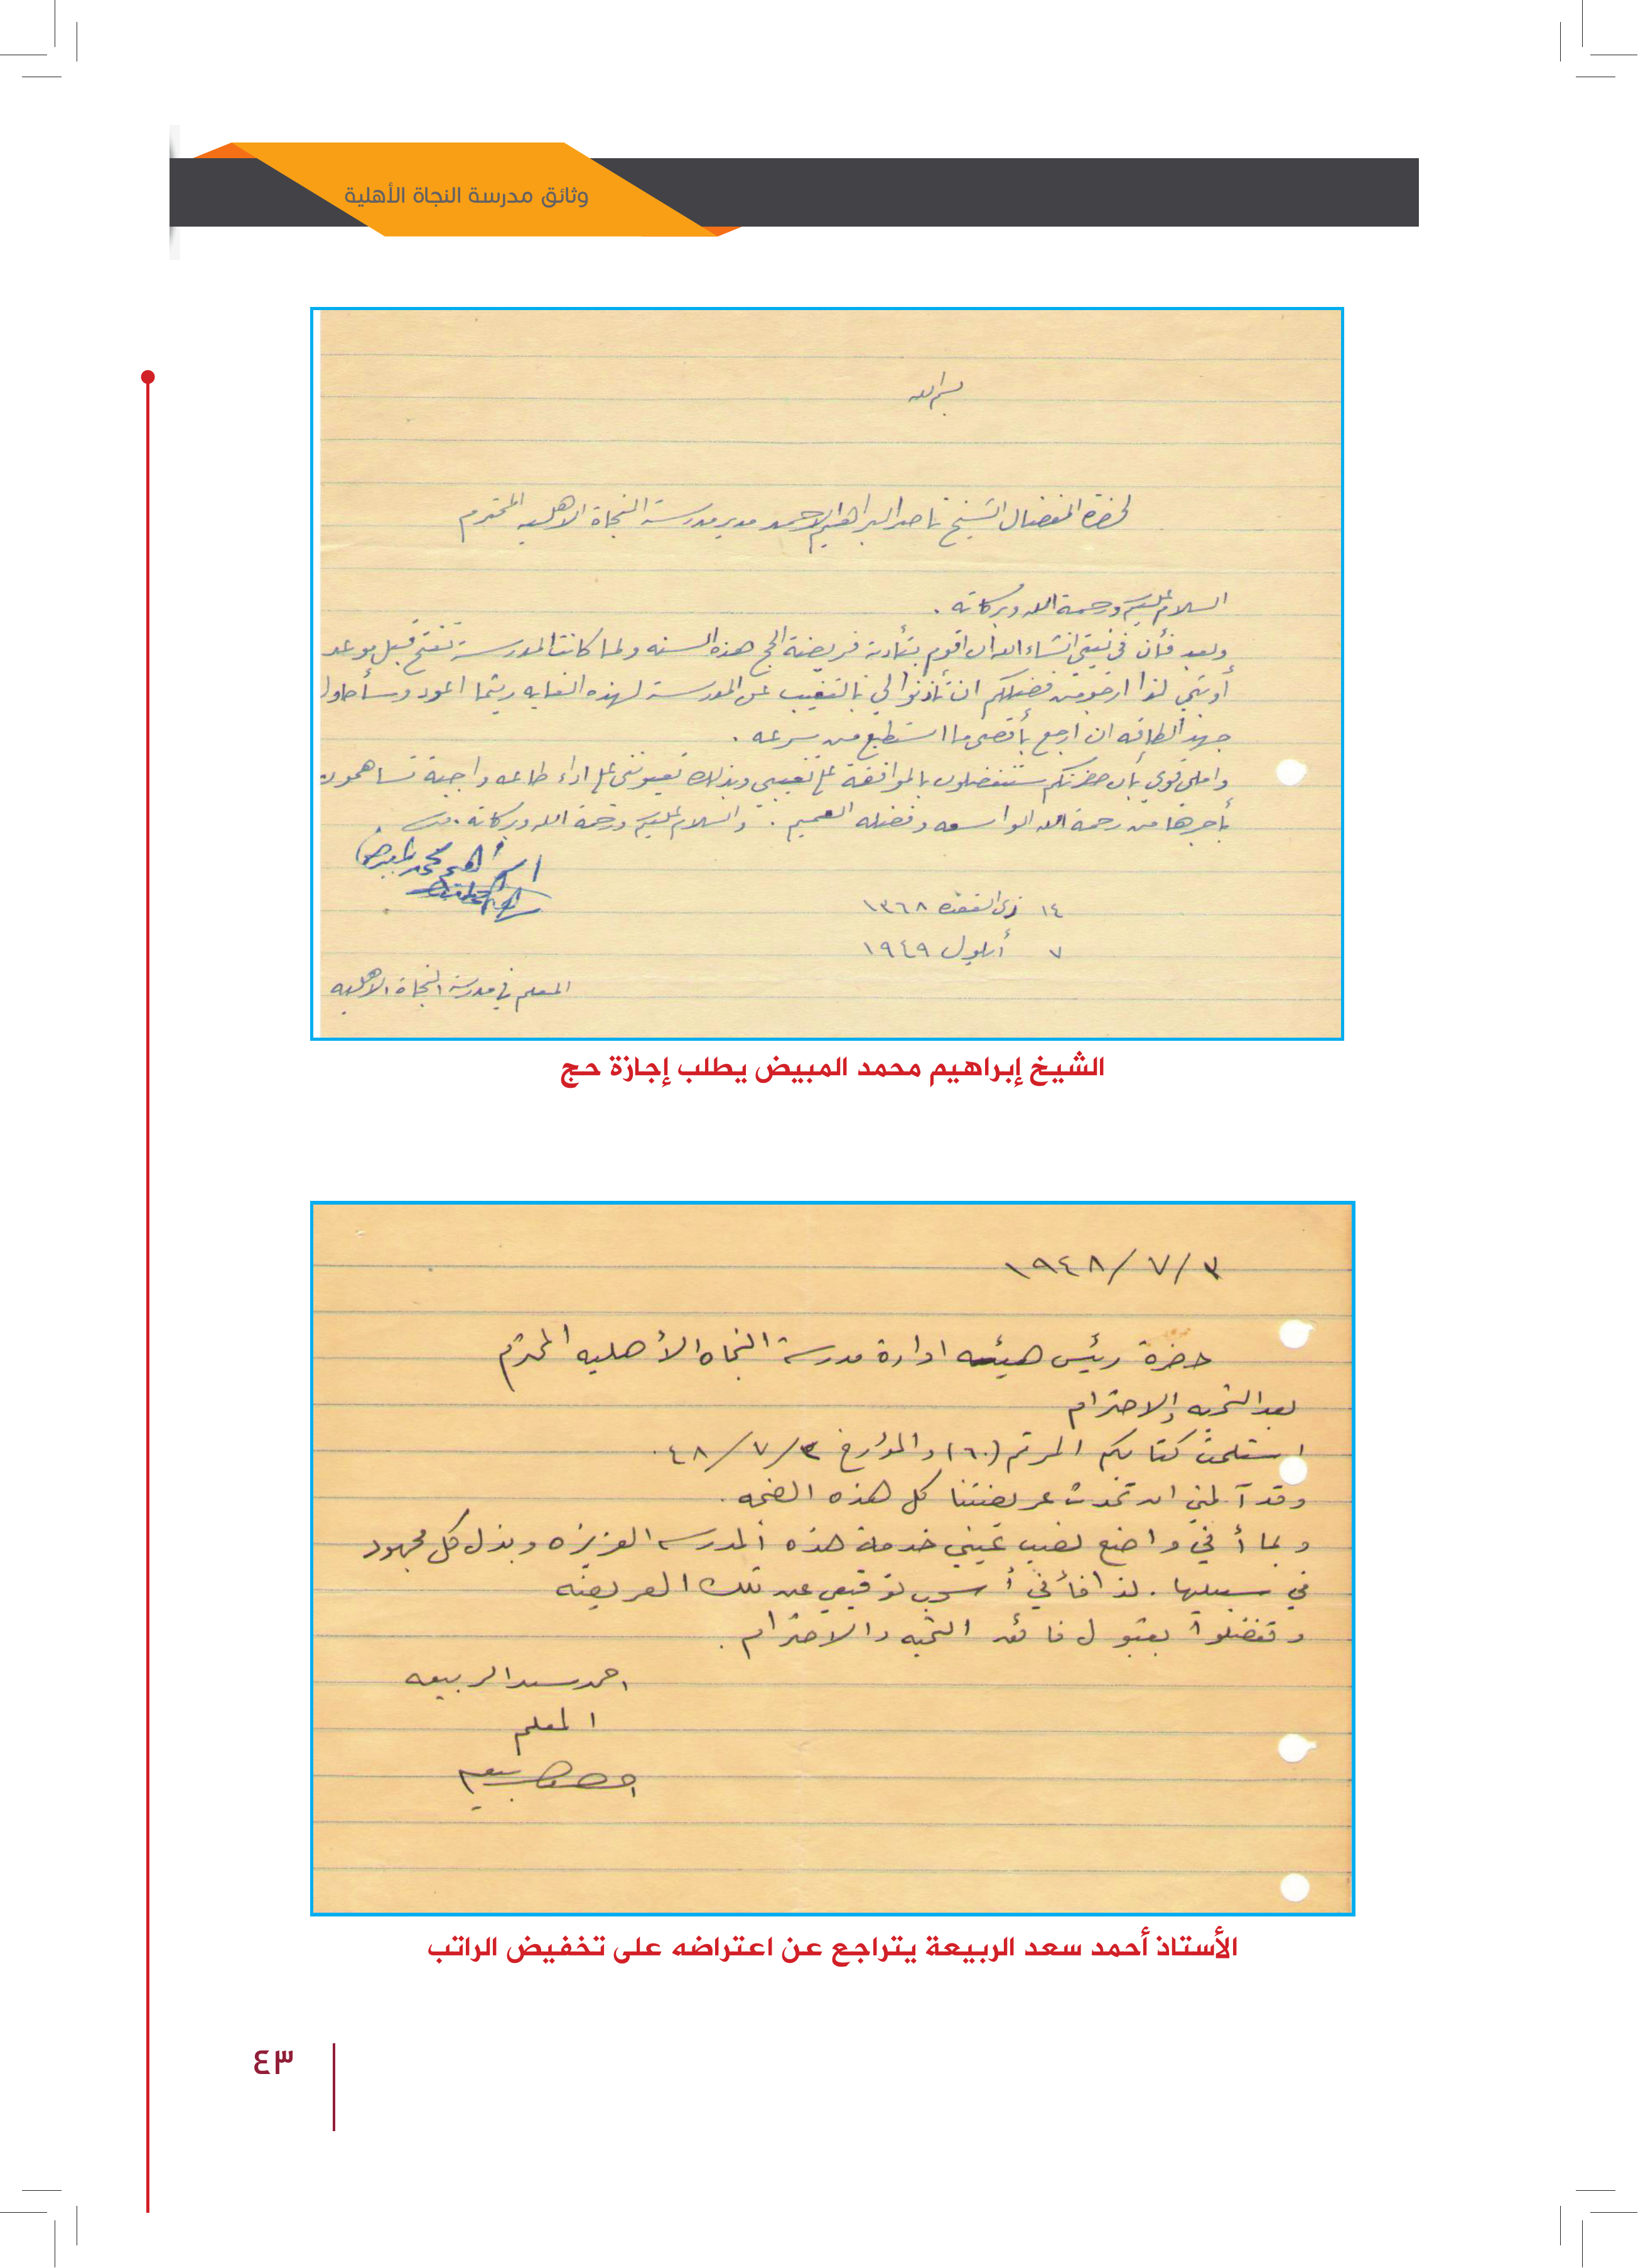 وثائق مدرسة النجاة الأهلية
بسم الله
لحضرة المفضال الشيخ ناصر البراهيم الاحمد مدير مدرسة النجاة الاهليه المحترم
السلام عليكم ورحمة الله وبركاته .
وبعد فأن في نيتي انشاء الله ان اقوم بتأدية فريضة الحج هذه السنه ولما كانت المدرسة تفتح قبل موعد
أوبتي لذا ارجو من فضيلتكم ان تأذنوا لي بالتغيب عن المدرسة لهذه الغايه ريثما اعود وسأحاول
جهد الطاقه ان ارجع بأقصى ما استطيع من سرعه .
واملي قوي بأن حضرتكم ستتفضلون بالموافقة على تغيبي وبذلك تعينونني على اداء طاعه واجبة تساهمون
بأجرها من رحمة الله الواسعه وفضله العميم . والسلام عليكم ورحمة الله وبركاته .
ابراهيم محمد المبيض
١٤ ذي القعده ١٣٦٨
٧ أيلول ١٩٤٩
المعلم في مدرسة النجاة الاهليه
الشيخ إبراهيم محمد المبيض يطلب إجازة حج
٣/٧/١٩٤٨
حضرة رئيس هيئه ادارة مدرسة النجاه الأهليه المحترم
بعد التحيه والاحترام
استلمت كتابكم المرقم (٦٠) والمؤرخ ٣/٧/٤٨ .
وقد آلمني ان تحدث عريضتنا كل هذه الضجه .
وبما أني واضع نصب عيني خدمة هذه المدرسه العزيزه وبذل كل مجهود
في سبيلها . لذا فأني أسحب توقيعي عن تلك العريضه
وتفضلوا بقبول فائق التحيه والاحترام .
احمد سعد الربيعه
المعلم
الأستاذ أحمد سعد الربيعة يتراجع عن اعتراضه على تخفيض الراتب
٤٣